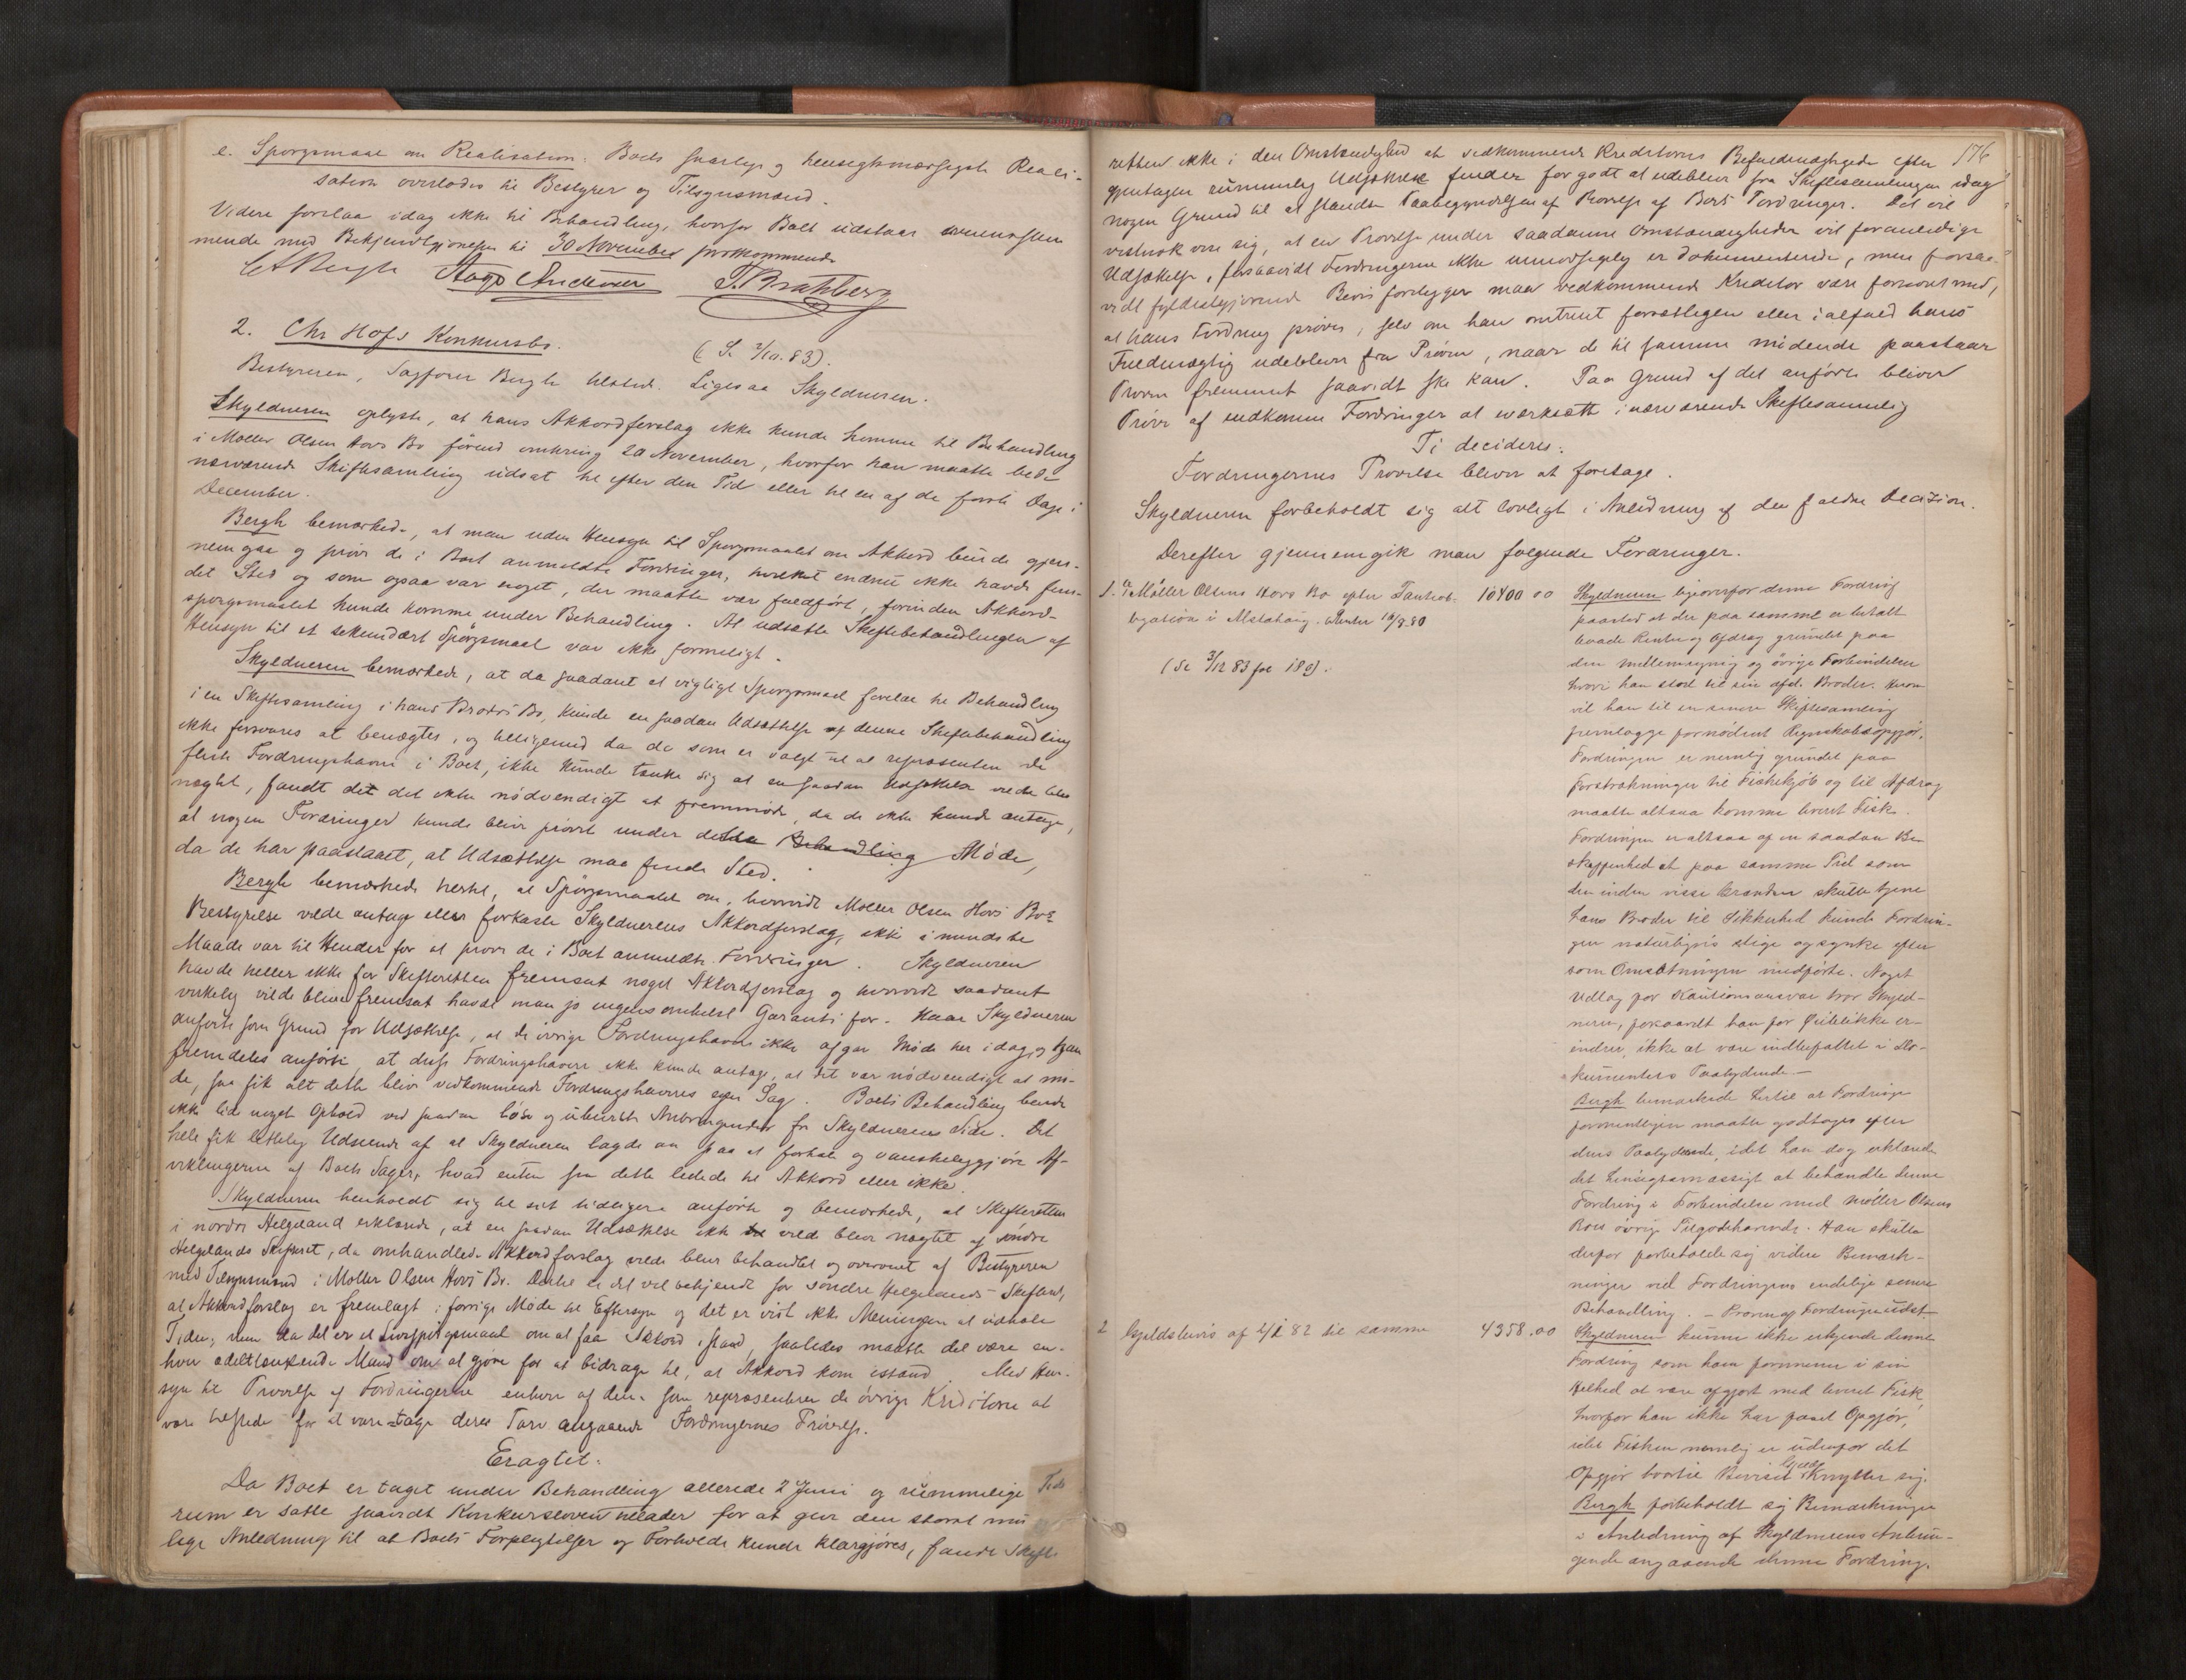 e. Sporgsmaal om Realisation. Boets snarlige og hensigtsmæssigste Reali-
sation overlodes til Bestyrer og Tilsynsmænd.
Videre forelaa idag ikke til Behandling, hvorfor Boet udstaar
mende med Bekjendtgjørelsen til 30 November førstkommende
CA Bergh Aage Andersen T. Brahberg
2. Chr Hofs Konkursbo.
(Se 2/10.83).
Bestyreren, Sagfører Bergh tilsted. Ligesaa Skyldneren.
Skyldneren oplyste, at hans Akkordforslag ikke kunde komme til Behandling
i Møller Olsen Hovs Bo førend omkring 20 November, hvorfor han maatte bede
nærværende Skiftesamling udsat til efter den Tid eller til en af de første Dage i
December.
Bergh bemærkede, at man uden Hensyn til Sporgsmaalet om Akkord burde gjen-
nemgaa og prøve de i Boet anmeldte Fordringer, hvilket endnu ikke havde fun-
det Sted og som ogsaa var noget, der maatte være fuldført, forinden Akkord-
sporgsmaalet kunde komme under Behandling. At udsætte Skiftebehandlingen af
Hensyn til et sekundært Spørgsmaal var ikke formeligt.
Skyldneren bemærkede, at da saadant et vigtigt Sporgsmaal forelaa til Behandling
i en Skiftesamling i hans Broders Bo, kunde en saadan Udsættelse af denne Skiftebehandling
ikke forsvares at benægtes, og tilligemed da de som er valgt til at repræsentere de
fleste Fordringshavere i Boet, ikke kunde tænke sig at en saadan Udsættelse vilde blive
nægtet, fandt det ikke nødvendigt at fremmøde, da de ikke kunde antage,
at nogen Fordringer kunde blive prøvet under dette Behandling Møde,
da de har paastaaet, at Udsættelse maa finde Sted.
Bergh bemærkede hertil, at Spørgsmaalet om, hvorvidt Møller Olsen Hovs Bos
Bestyrelse vilde antage eller forkaste Skyldnerens Akkordforslag, ikke i mindste
Maade var til Hinder for at prøve de i Boet anmeldte Fordringer. Skyldneren
havde heller ikke for Skifteretten fremsat noget Akkordforslag og hvorvidt saadant
virkelig vilde blive fremsat havde man jo ingensomhelst Garanti for. Naar Skyldneren
anførte som Grund for Udsættelse, at de øvrige Fordringshavere ikke afgav Møde her idag, og han
fremdeles anførte, at disse Fordringshavere ikke kunde antage, at det var nødvendigt at mø-
de, saa fik alt dette blive vedkommende Fordringshaveres egen Sag. Boets Behandling burde
ikke lide noget Ophold ved saadan løse og ubeviste Anbringender fra Skyldnerens Side. Det
hele fik letteleg Udseende af at Skyldneren lagde an paa at forhale og vanskeliggjøre Af-
viklingerne af Boets Sager, hvad enten saa dette ledede til Akkord eller ikke.
Skyldneren henholdt sig til sit tidligere anførte og bemærkede, at Skifteretten
i nordre Helgeland erklærede, at en saadan Udsættelse ikke vilde blive nægtet af søndre
Helgelands Skifteret, da omhandlede Akkordforslag vilde blive behandlet og overvejet af Bestyreren
med Tilsynsmænd i Møller Olsen Hovs Bo. Dertil er det vel bekjendt for søndre Helgelands Skifteret,
at Akkordforslag er fremlagt i forrige Møde til Eftersyn og det er vist ikke Meningen at udhale
Tiden; men da det er et Livsspørgsmaal om at faa Akkord istand, saaledes maatte det være en-
hver ædelttænkende Mand om at gjøre for at bidrage til, at Akkord kom istand. Med Hen-
syn til Prøvelse af Fordringerne enhver af dem som repræsenterer de øvrige Kreditorer at
være tilstede for at vare-tage deres Tarv angaaende Fordringernes Prøvelse.
Eragtet.
Da Boet er taget under Behandling allerede 2 Juni og rummelige Tids
rum er satte saavidt Konkursloven tillader for at give den størst mu
lige Anledning til at Boets Forpligtelser og Forholde kunde klargjøres, fandt Skifte
176
retten ikke i den Omstændighed at vedkommende Kreditorers Befuldmægtigede efter
gjentagen rummelig Udsættelse finder for godt at udeblive fra Skiftesamlingen idag
nogen Grund til at standse Paabegyndelsen af Prøvelse af Boets Fordringer. Det vil
vistnok vise sig, at en Prøvelse under saadanne Omstændigheder vil foranledige
Udsættelse, forsaavidt Fordringerne ikke unmodsigelig er dokumenterede, men forsaa-
vidt fyldestgjørende Bevis foreligger maa vedkommende Kreditor være forsvaret med,
at hans Fordring prøves, selv om han omtrent forsætligen eller i alfald hans
Fuldmægtig udebliver fra Prøven, naar de til samme mødende paastaar
Prøven fremmet saavidt ske kan. Paa Grund af det anførte bliver
Prøve af indkomne Fordringer at iværksætte i nærværende Skiftesamling
Ti decideres:
Fordringernes Prøvelse bliver at foretage.
Skyldneren forbeholdt sig alt lovligt i Anledning af den faldne Decision.
Derefter gjennemgik man følgende Fordringer.
1. Møller Olsens Hovs Bo efter Panteob- 10400 00
ligation i Alstahaug. Renter 10/8.80
(Se 3/12 83 fol 180).
Skyldneren ligeoverfor denne Fordring
paastod at der paa samme er betalt
baade Renter og Afdrag grundet paa
den Mellemregning og øvrige Forbindelser
hvori han stod til sin afd. Broder. Herom
vil han til en senere Skiftesamling
fremlægge fornødent Regnskabsopgjør.
Fordringen er nemlig grundet paa
Forstrækninger til Fiskekjøb og til Afdrag
maatte altsaa komme leveret Fisk.
Fordringen er altsaa af en saadan Be-
skaffenhed at paa samme Tid som
den inden visse Grændser skulde tjene
hans Broder til Sikkerhed kunde Fordrin-
gen naturligvis stige og synke efter
som Omsætningen medførte. Noget
Udlæg for Kautionsansvar bør Skyld-
neren, forsaavidt han for Øieblikke er-
indrer, ikke at være indbefattet i Do-
kumentets Paalydende —
Bergh bemærkede hertil at Fordringen
formentligen maatte godtages efter
dens Paalydende, idet han dog erklærede
det hensigtsmæssigt at behandle denne
Fordring i Forbindelse med Møller Olsens
Boes øvrige Tilgodehavende. Han skulde
derfor forbeholde sig videre Bemærk-
ninger ved Fordringens endelige senere
Behandling. – Prøven af Fordringen udst.
2 Gjeldsbevis af 2/1 82 til samme 4358.00
Skyldneren kunne ikke erkjende denne
Fordring som han formener i sin
Helhed at være afgjort med leveret Fisk,
hvorfor han ikke har faaet Opgjør,
idet Fisken nemlig er udenfor det
Opgjør hvortil Beviset knytter sig.
Bergh forbeholdt sig Bemærkninger
i Anledning af Skyldnerens Anbrin-
gende angaaende denne Fordring.